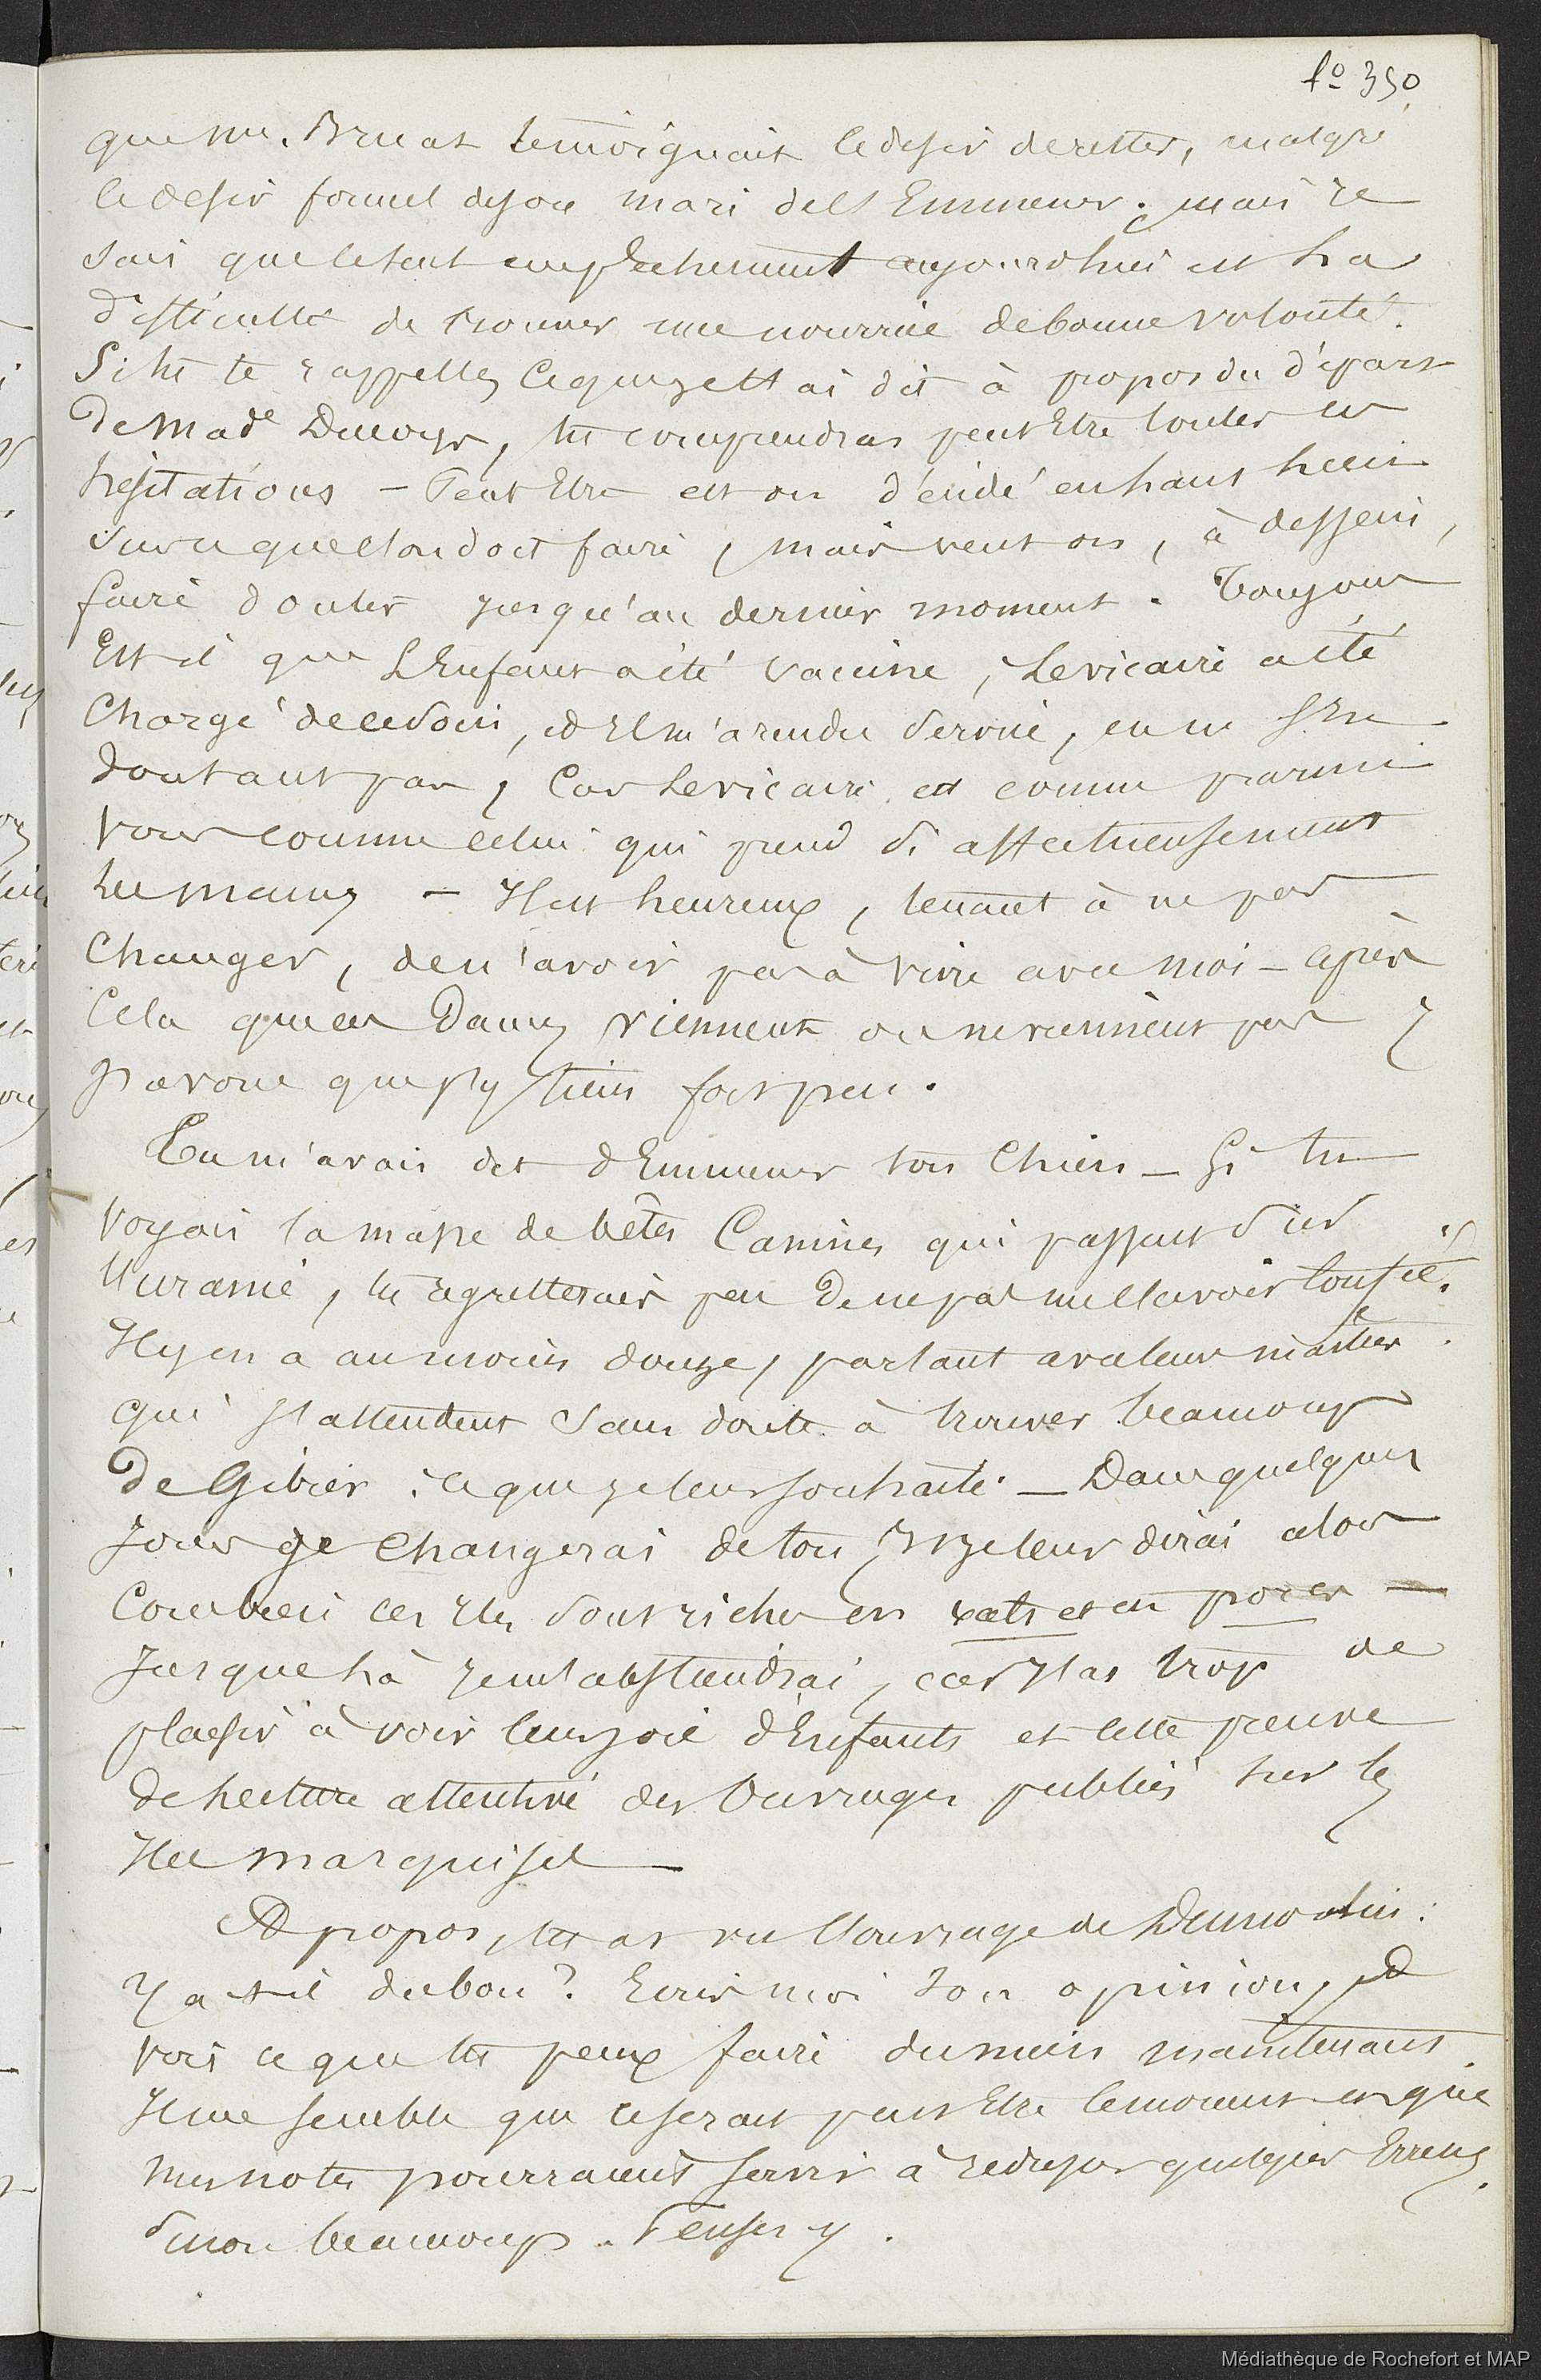 fo 350
que Mme. Bruat temoignait le desir de rester, malgré
le desir formel de son mari de l'Emmener. mais Je
sais que le seul empêchement aujourd'hui est La
difficulté de trouver une nourrice de bonne volonté.
Si tu te rappelles ce que je t'ai dit à propos du départ
De Made Ducoys, tu comprendras peut Etre toutes ces
hesitations - Peut Etre est on décidé en haut lieu
sur ce que l'on doit faire, mais veut on, à dessein,
faire douter jusqu'au dernier moment. Toujours
Est il que L'Enfant a été vacciné, Le vicaire a été
Chargé de ce soin, et Il m'a rendu service, en ne s'En
doutant pas, Car Le vicaire est connu parmi
vous comme celui qui prend si affectueusement
Les mains - Il est heureux, tenant à ne pas
Changer, de n'avoir pas à vivre avec moi - après
Cela que ces Dames viennent ou ne viennent pas
J'avoue que j'y tiens fort peu.
Tu m'avais dit d'Emmener ton Chien - Si tu
voyais la masse de bêtes Canines qui passent sur
L'Uranie, tu regretterais peu De ne pas me l'avoir confié.
Il y en a au moins douze, partant avec leurs maîtres
qui s'attendent sans doute à trouver beaucoup
De Gibier. ce que je leur souhaite - Dans quelques
Jours je Changerai de ton, et je leur dirai alors
Combien ces Iles sont riches en rats et en porcs -
Jusque là je m'abstiendrai, car J'ai trop de
plaisir à voir leur joie d'Enfants et cette preuve
de Lecture attentive des Ouvrages publiés sur les
Iles marquises -
A propos, tu as vu l'ouvrage de Dumoulin:
Y a t il du bon? Ecris moi ton opinion, et
vois ce que tu peux faire du mien maintenant.
Il me semble que ce serait peut Etre le moment où que
mes notes pourraient servir à redresser quelques Erreurs,
sinon beaucoup. Penses y.
Médiathèque de Rochefort et MAP